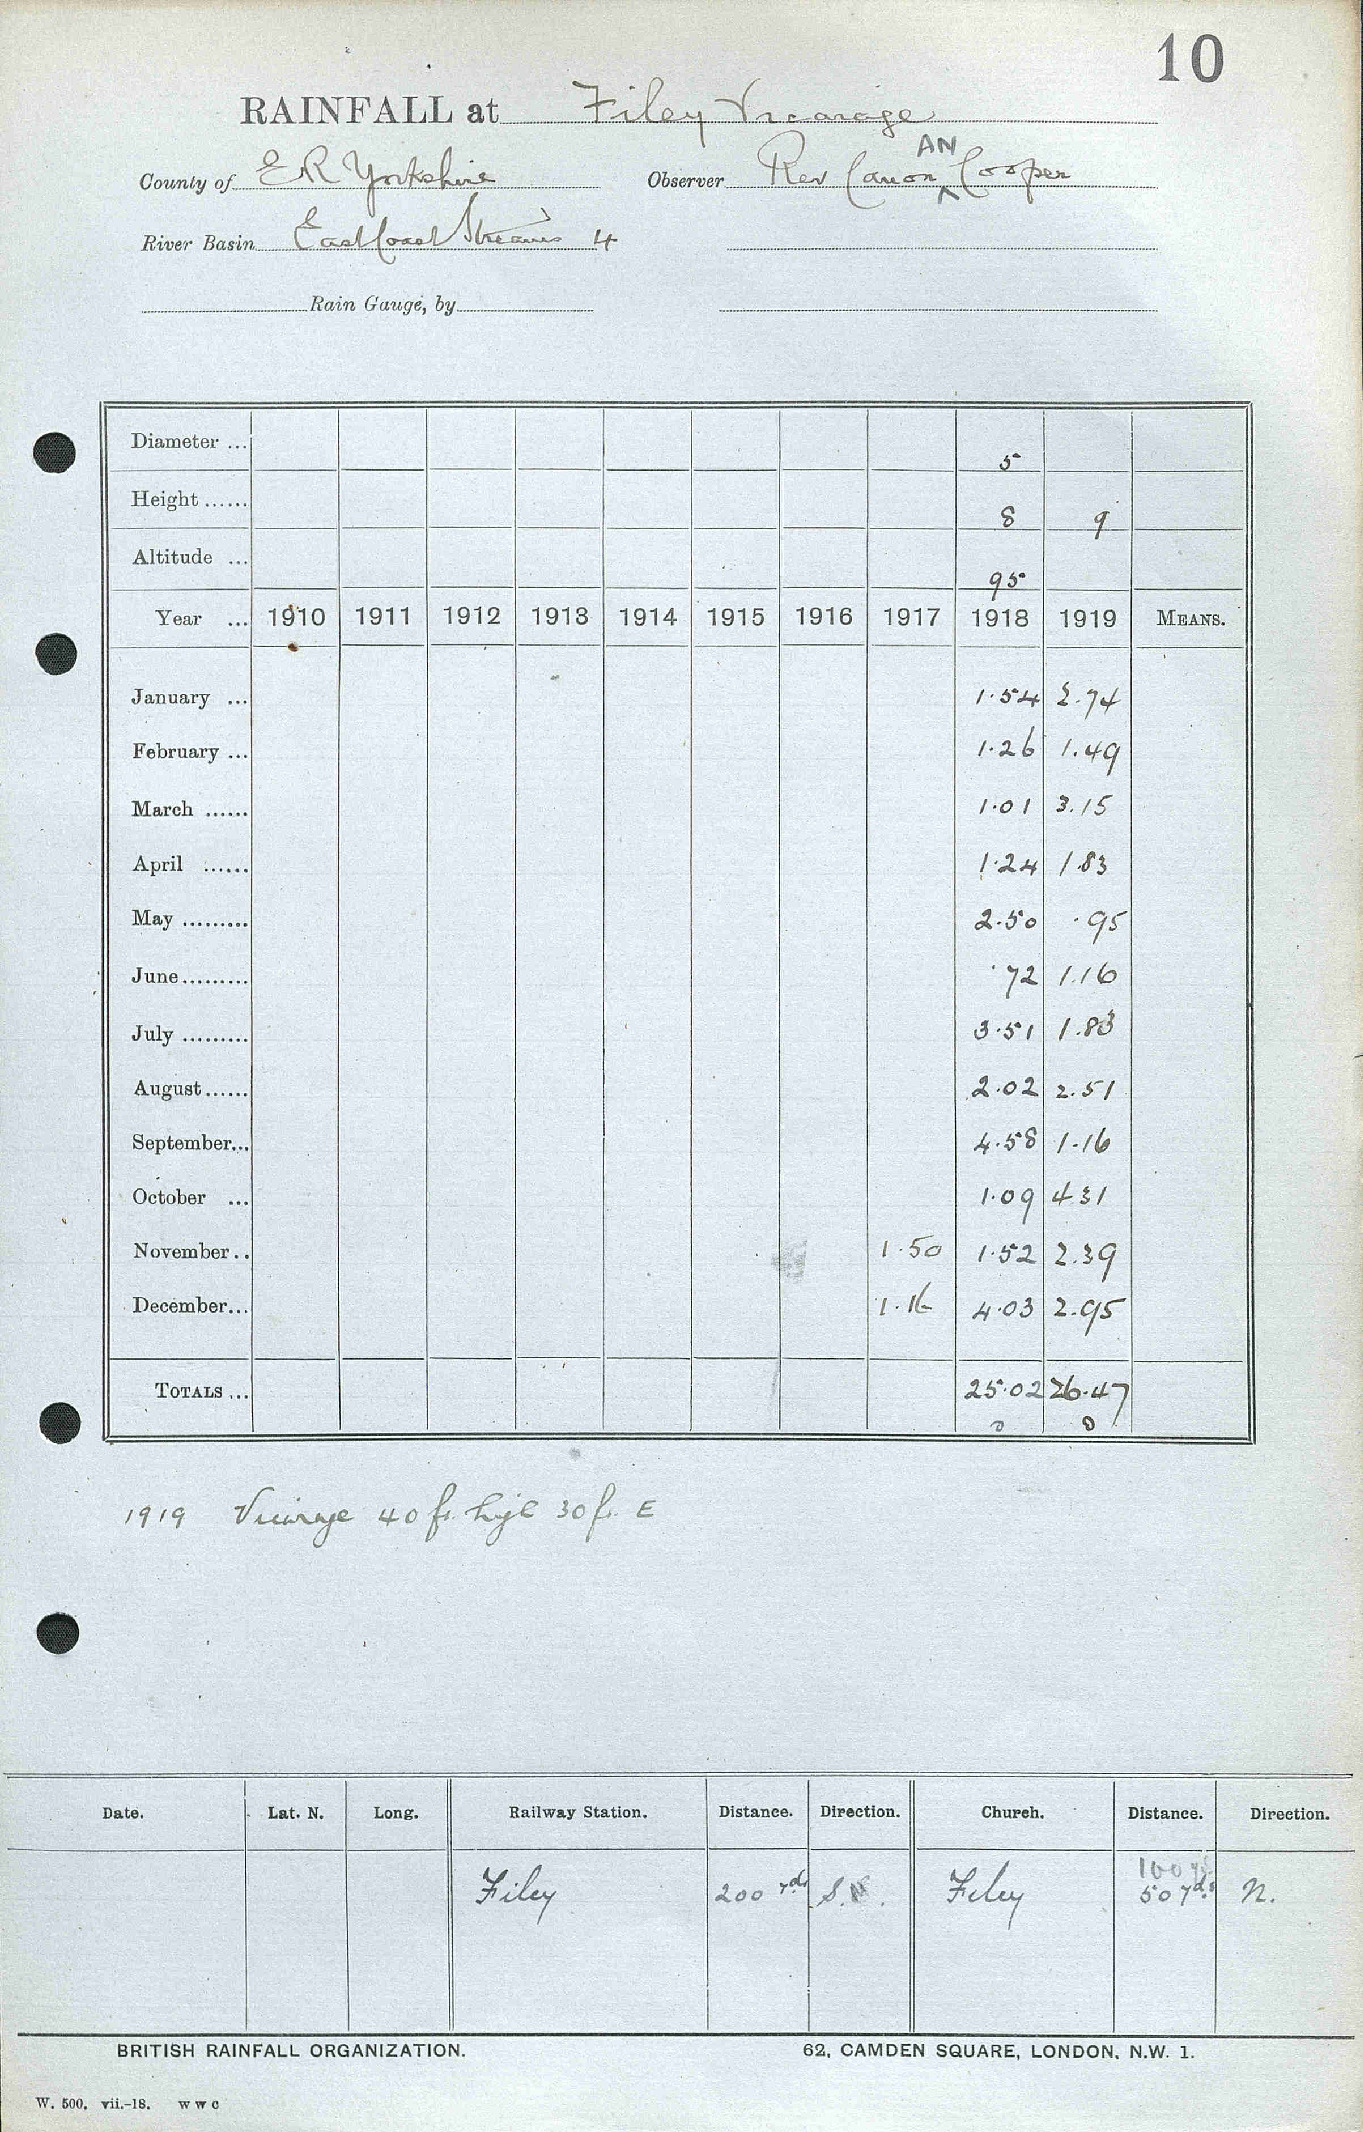 10
RAINFALL at Filey Vicarage
AN
County of E R Yorkshire Observer Rev Canon ^ Cooper
River Basin East Coast Streams 4
Rain Gauge, by
Diameter ... 5
Height ...... 8 9
Altitude ... 95
Year ... 1910 1911 1912 1913 1914 1915 1916 1917 1918 1919 MEANS.
January ... 1.54 2.74
February ... 1.26 1.49
March ...... 1.01 3.15
April ...... 1.24 1.83
May ......... 2.50 .95
June......... .72 1.16
July ......... 3.51 1.83
August...... 2.02 2.51
September... 4.58 1.16
October ... 1.09 4.31
November.. 1.50 1.52 2.39
December... 1.16 4.03 2.95
TOTALS ... 25.02 26.47
1919 Vicarage 40 ft. high 30 ft. E
Date. Lat. N. Long. Railway Station. Distance. Direction. Church. Distance. Direction.
100 yds
Filey 200 yds S. Filey 50 yds. N.
BRITISH RAINFALL ORGANIZATION. 62, CAMDEN SQUARE, LONDON, N.W. 1.
W. 500. vii.-18. W W C